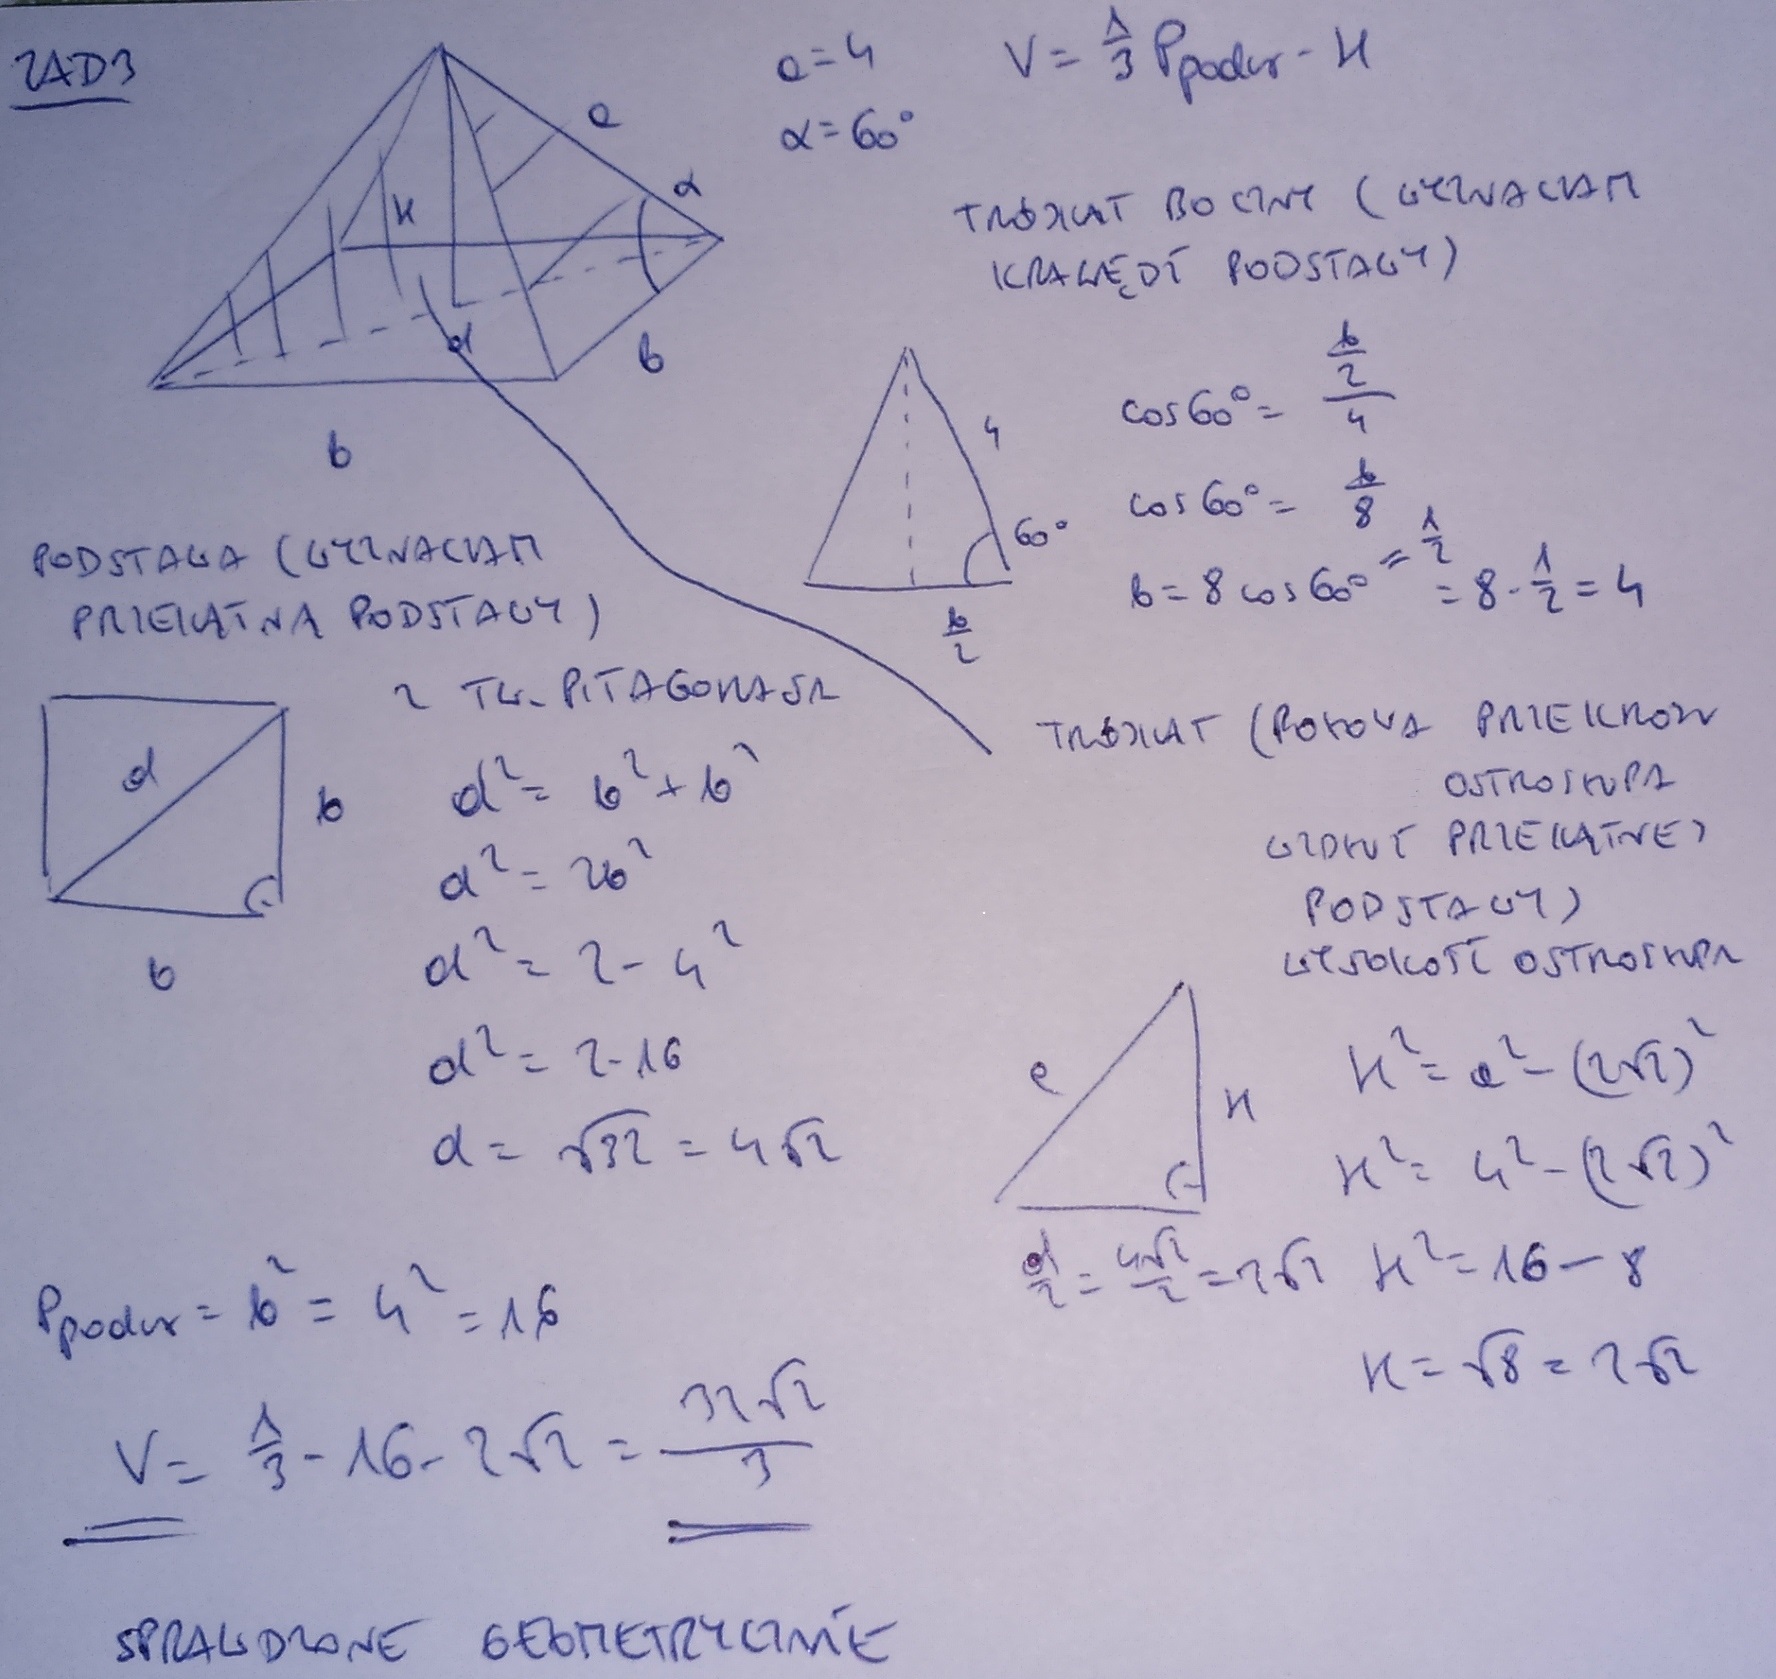 ZAD3
e=4
α=60°
V= 1/3 Ppodst · H
e
α
H
d
b
b
TRÓJKĄT BOCZNY (WYZNACZAM
KRAWĘDŹ PODSTAWY)
4
60°
b/2
cos60°= (b/2)/4
cos60°= b/8
b=8cos60° = 1/2 = 8·1/2=4
PODSTAWA (WYZNACZAM
PRZEKĄTNĄ PODSTAWY)
Z TW. PITAGORASA
d
b
b
d²= b²+b²
d²= 2b²
d²= 2·4²
d²= 2·16
d= √32 = 4√2
TRÓJKĄT (POŁOWA PRZEKROJU
OSTROSŁUPA
WZDŁUŻ PRZEKĄTNEJ
PODSTAWY)
WYSOKOŚĆ OSTROSŁUPA
e
H
d/2 = 4√2/2 = 2√2
H²= e²-(2√2)²
H²= 4²-(2√2)²
H²=16-8
H=√8=2√2
Ppodst= b² = 4² =16
V= 1/3·16·2√2 = 32√2/3
SPRAWDZONE GEOMETRYCZNIE